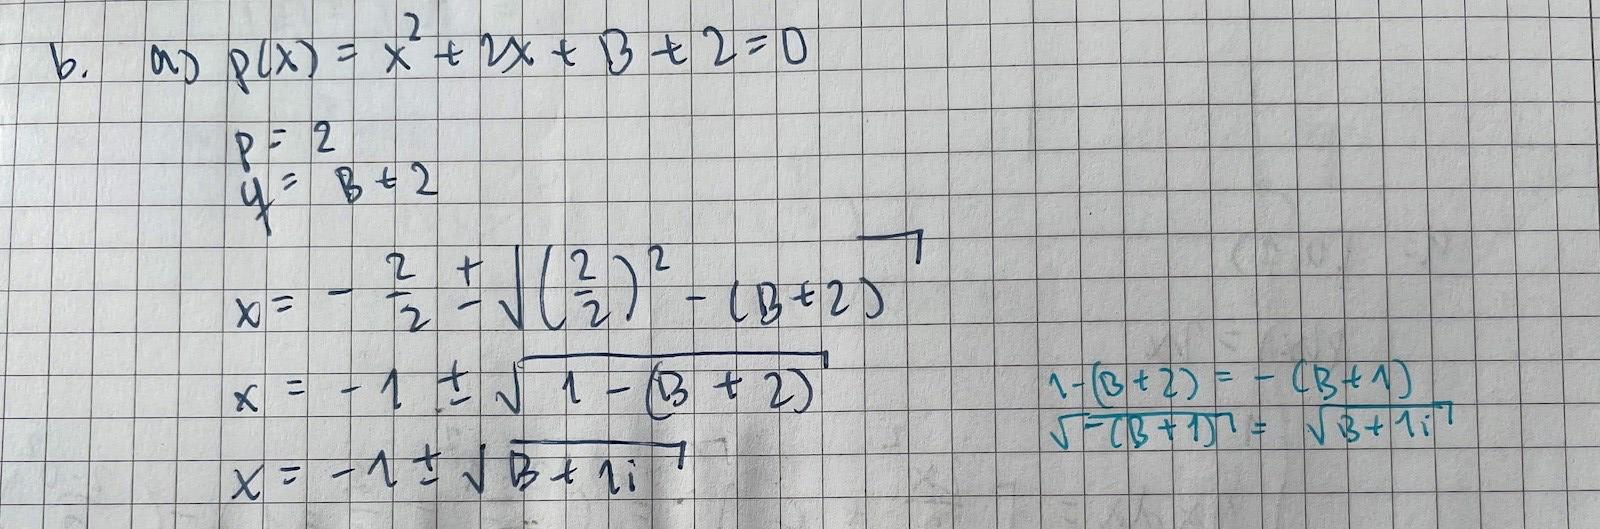 b. a) p(x) = x² + 2x + B + 2 = 0
p = 2
q = B + 2
x = - 2/2 ± √((2/2)² - (B + 2))
x = -1 ± √(1 - (B + 2))
1 - (B + 2) = - (B + 1)
√(-(B + 1)) = √(B + 1i)
x = -1 ± √(B + 1i)